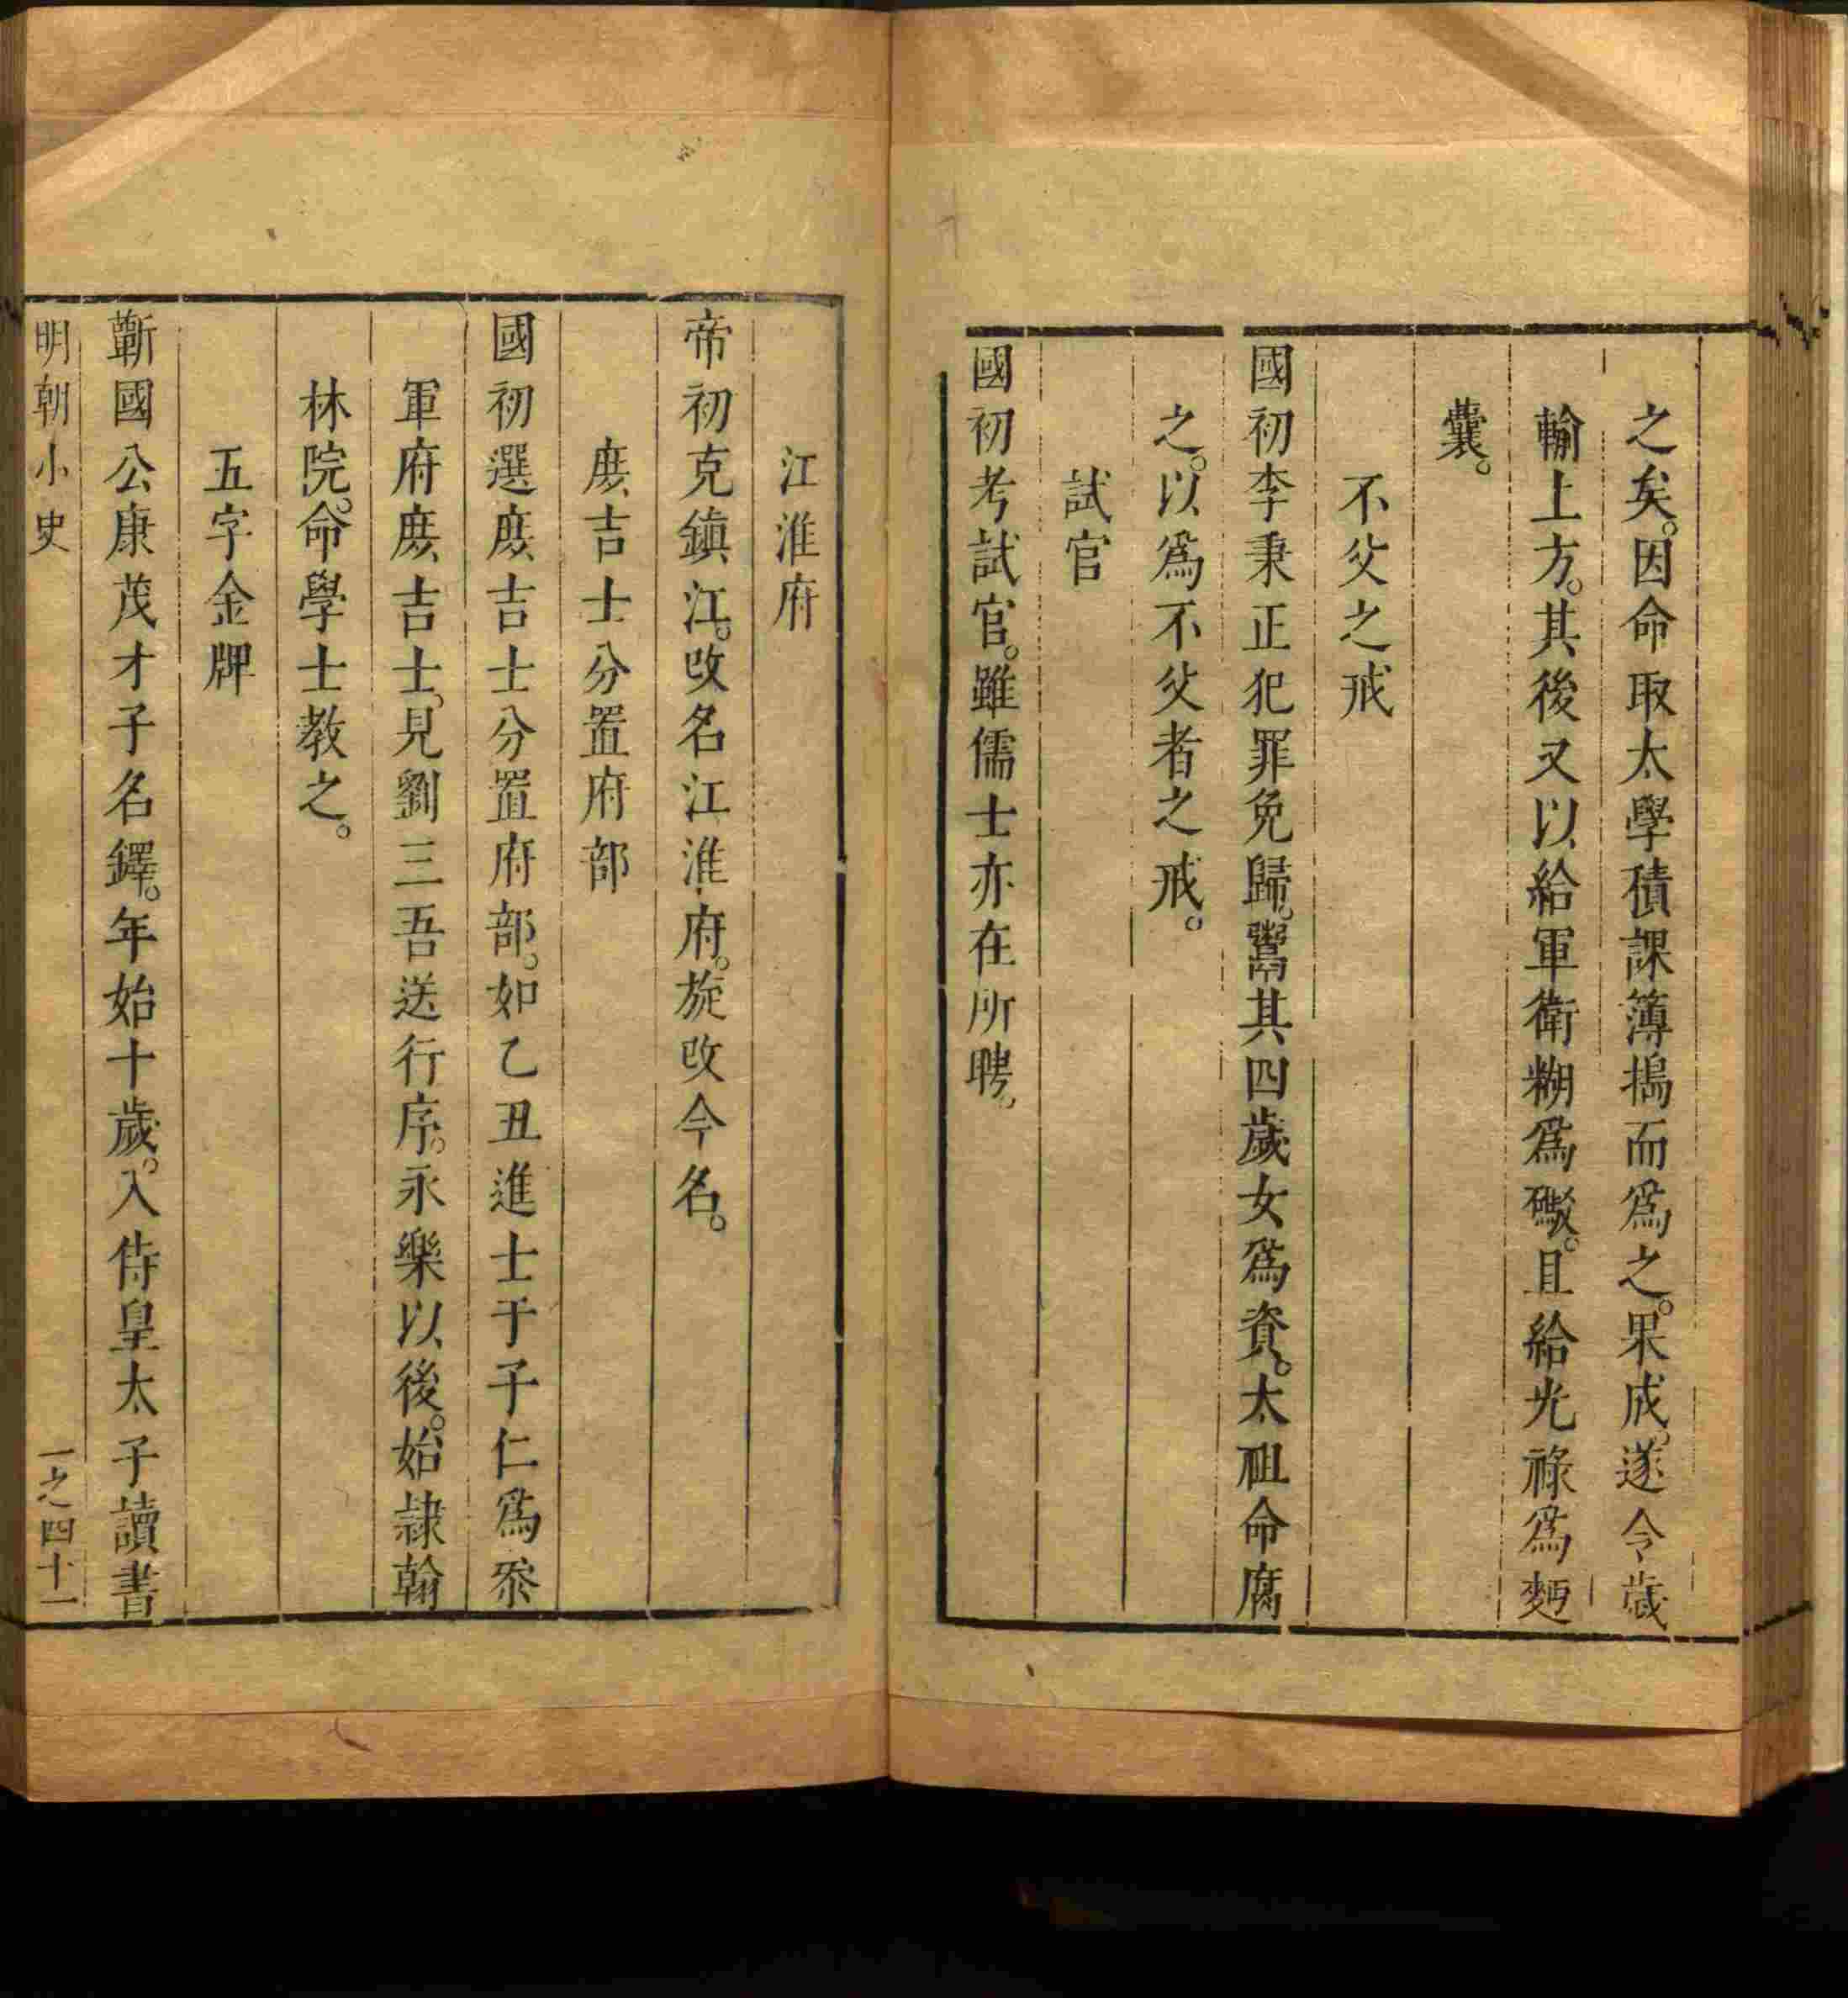 之矣。因命取太學積課簿搗而爲之。果成。遂令歲
輸上方。其後又以給軍衛糊爲礮。且給光祿爲麪
囊。
不父之戒
國初李秉正犯罪免歸。鬻其四歲女爲資。太祖命腐
之。以爲不父者之戒。
試官
國初考試官。雖儒士亦在所聘。
江淮府
帝初克鎮江。改名江淮府。旋改今名。
庻吉士分置府部
國初選庻吉士分置府部。如乙丑進士于子仁爲叅
軍府庻吉士。見劉三吾送行序。永樂以後。始隷翰
林院。命學士教之。
五字金牌
蘄國公康茂才子名鐸。年始十歲。入侍皇太子讀書
明朝小史
一之四十一